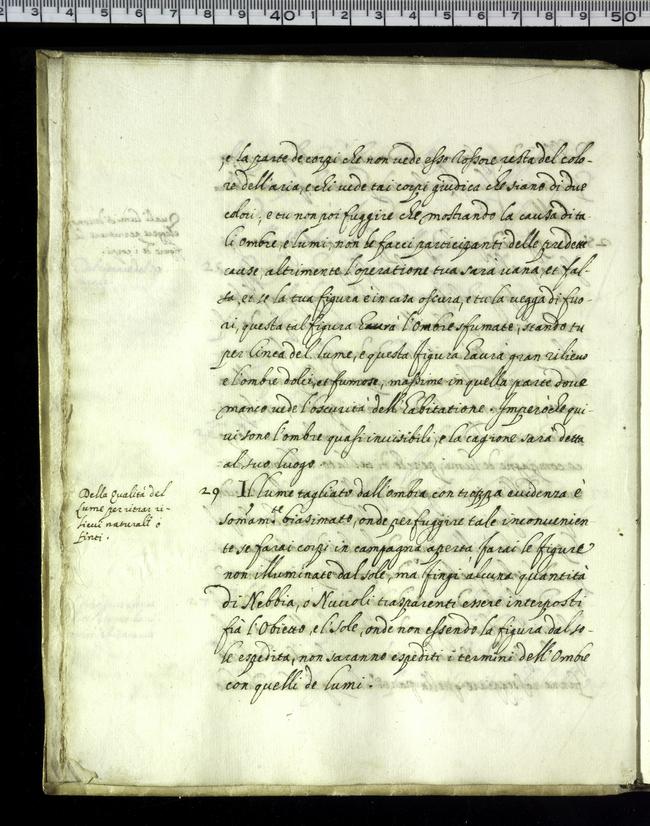 e la parte de corpi che non vede esso Rossore resta del colo-
re dell'aria, e chi vede tai corpi giudica che siano di due
colori, e tu non poi fuggire che mostrando la causa di ta-
li ombre, e lumi, non le facci participanti delle predette
cause, altrimente l'operatione tua sarà vana, et fal-
sa, et se la tua figura è in casa oscura, e tu la vegga di fuo-
ri, questa tal figura haurà l'ombre sfumate, stando tu
per linea del lume, e questa figura haurà gran rilieuo
e l'ombre dolci, et fumose, massime in quella parte doue
manco vede l'oscurità dell'habitatione. Imperoche qui-
ui sono l'ombre quasi inuisibili, e la cagione sarà detta
al suo luogo
Della Qualità del
Lume per ritrar ri-
lieui naturali o
finti.
29 Il lume tagliato dall'ombra con troppa euidenza è
somam.te biasimato, onde per fuggire tale inconuenien
te se farai corpi in campagna aperta farai le figure
non illuminate dal sole, mà fingi alcuna quantità
di Nebbia, ò Nuuoli trasparenti essere interposti
frà l'Obietto, e l'sole, onde non essendo la figura dal so-
le espedita, non saranno espediti i termini dell'Ombre
con quelli de lumi.